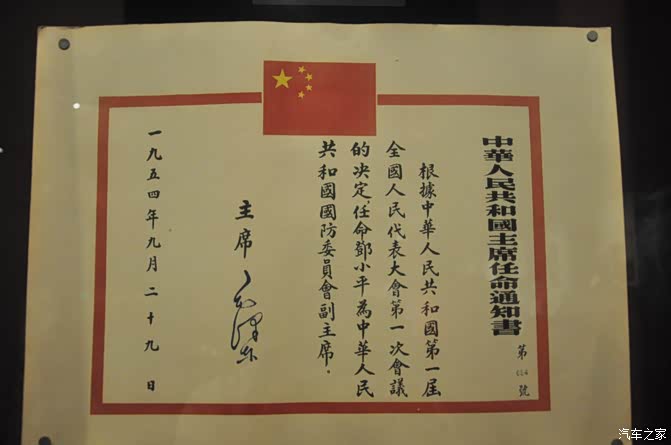 中華人民共和國主席任命通知書
第 號
根據中華人民共和國第一屆
全國人民代表大會第一次會議
的決定任命鄧小平為中華人民
共和國國防委員會副主席．
主席 毛澤东
一九五四年九月二十九日
汽车之家